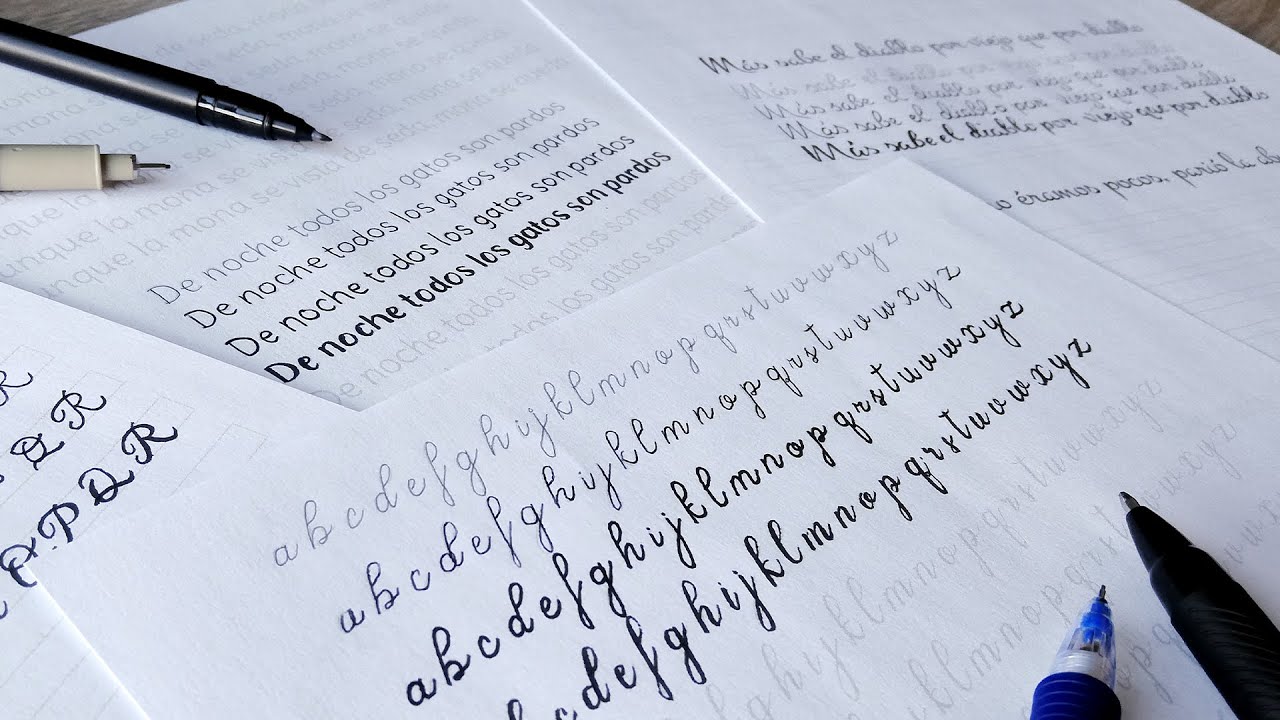 seda, mona se queda
mona se vista de seda, mona se queda
unque la mona se vista de seda, mona se queda
unque la mona se vista de seda, mona se queda
De noche todos los gatos son pardos
De noche todos los gatos son pardos
De noche todos los gatos son pardos
De noche todos los gatos son pardos
De noche todos los gatos son pardos
los gatos son pardos
Más sabe el diablo por viejo que por diablo
Más sabe el diablo por viejo que por diablo
Más sabe el diablo por viejo que por diablo
Más sabe el diablo por viejo que por diablo
Más sabe el diablo por viejo que por diablo
o éramos pocos, parió la
R
Q R
P Q R
a b c d e f g h i j k l m n o p q r s t u v w x y z
a b c d e f g h i j k l m n o p q r s t u v w x y z
a b c d e f g h i j k l m n o p q r s t u v w x y z
c d e f g h i j k l m n o p q r s t u v w x y z
h i j k l m n o p q r s t u v w x y z
j k l m n o p q r s t v w x y z